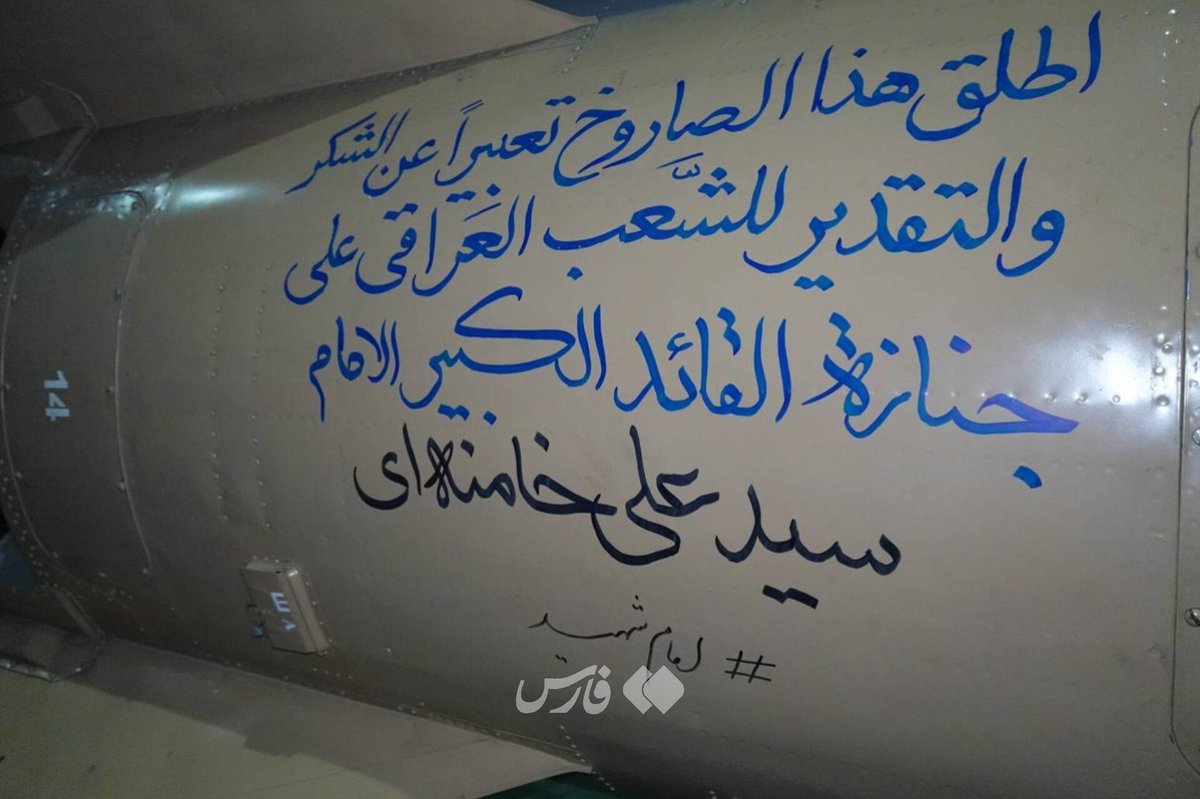 اطلق هذا الصاروخ تعبيراً عن الشكر
والتقدير للشَّعب العَراقي على
جنازة القائد الكبير الامام
سید علی خامنه‌ای
# امام شهید
فارس
14
E
V